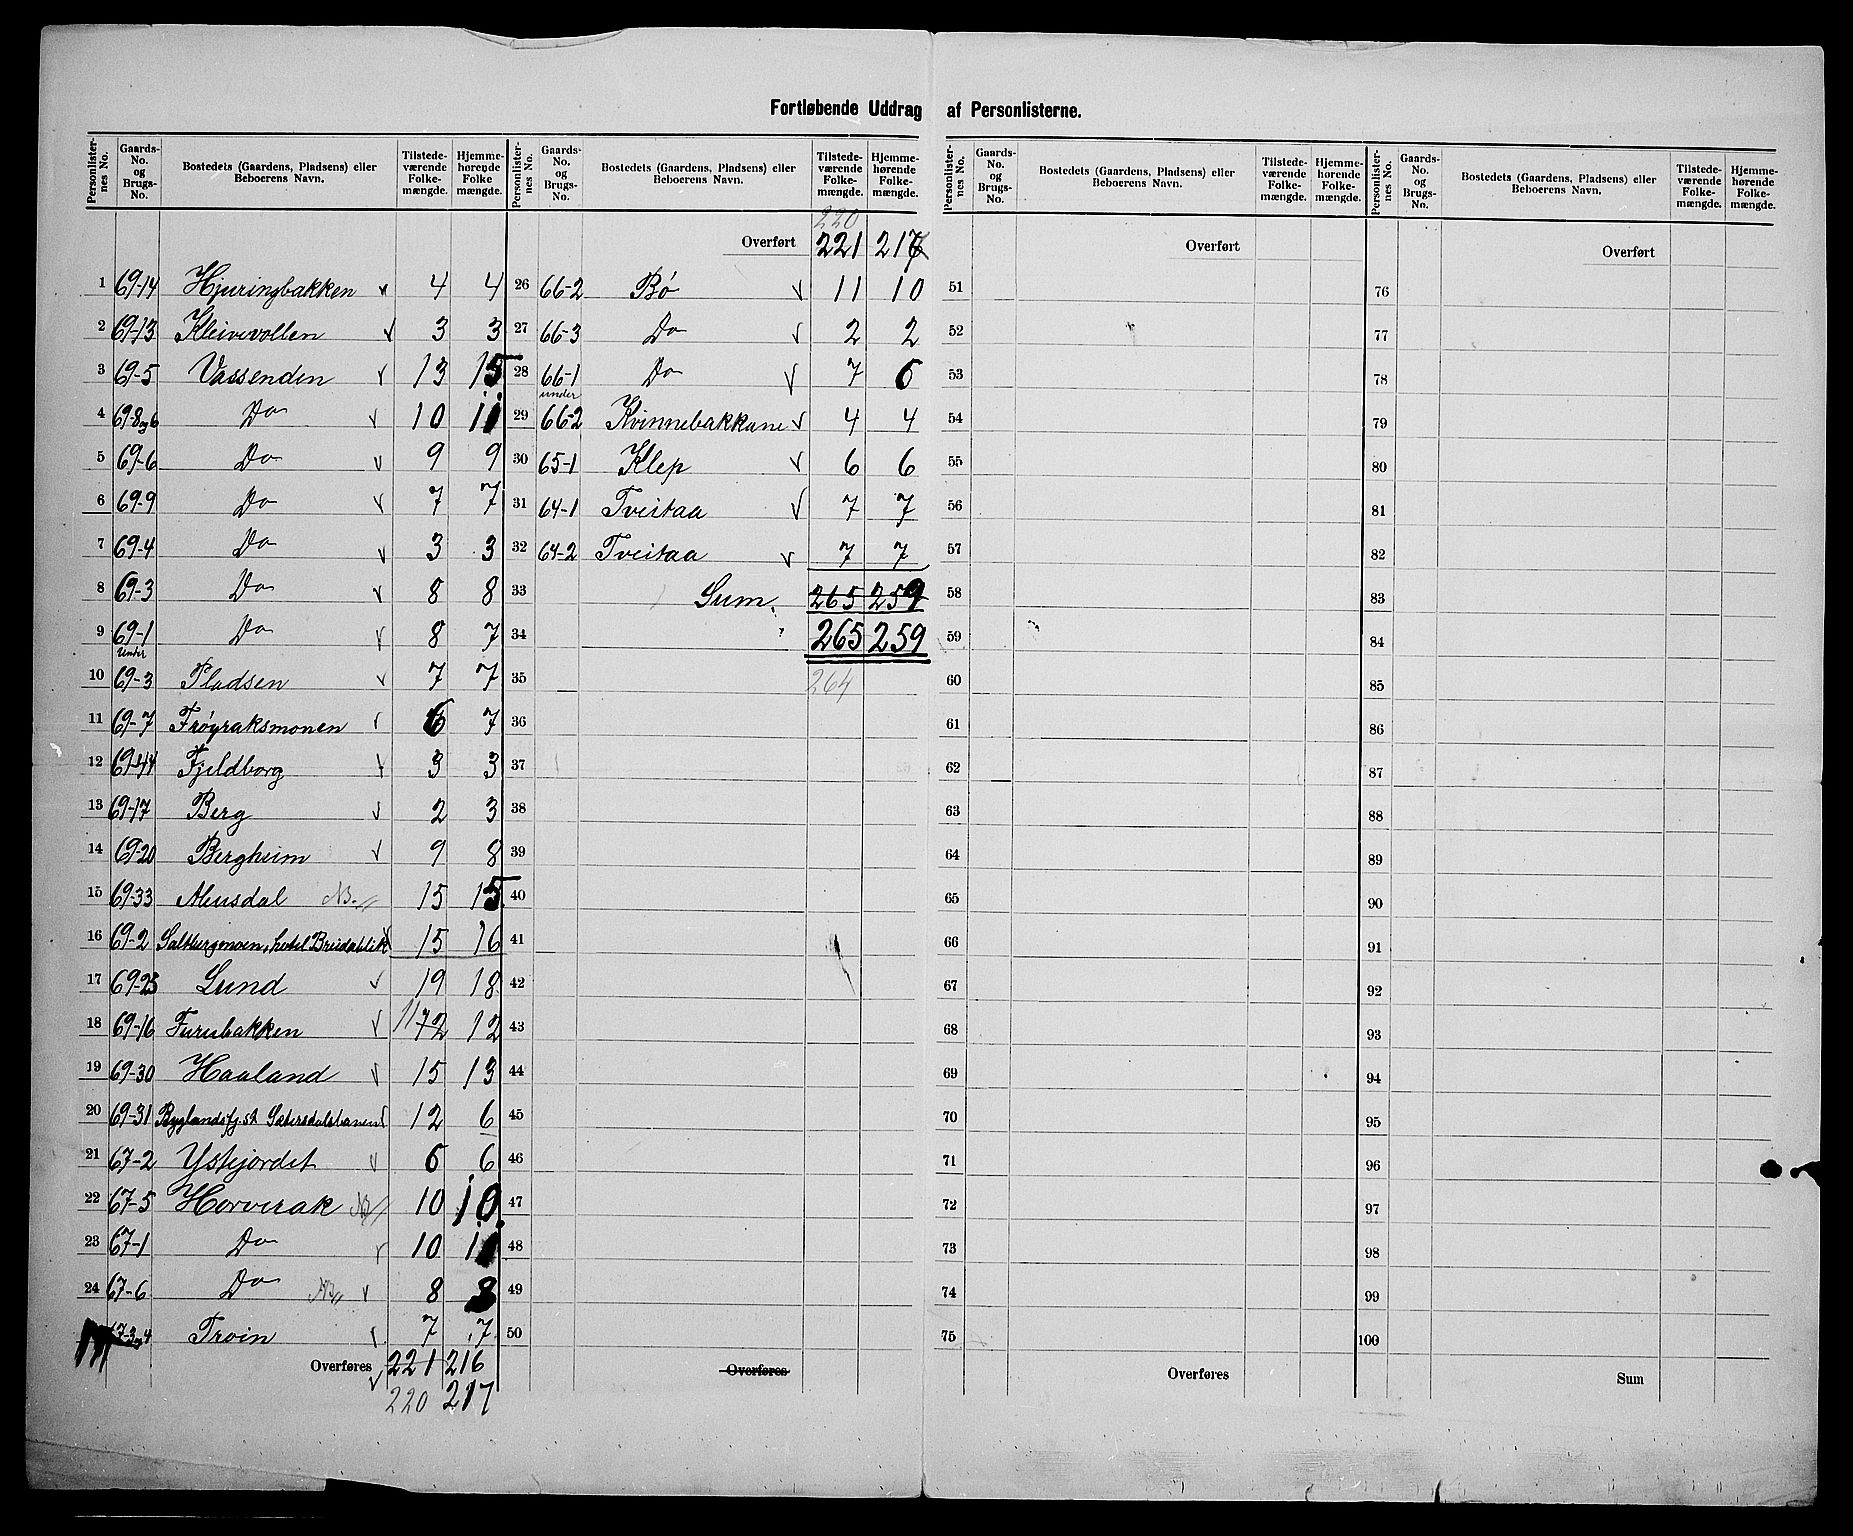 Fortløbende Uddrag af Personlisterne.
Personlisternes No. Gaards-No. og Brugs-No. Bostedets (Gaardens, Pladsens) eller Beboerens Navn. Tilstedeværende Folkemængde. Hjemmehørende Folkemængde.
1 69-14 Hjuringbakken 4 4
2 69-13 Kleivevollen 3 3
3 69-5 Vassenden 13 15
4 69-8 og 6 Do 10 11
5 69-6 Do 9 9
6 69-9 Do 7 7
7 69-4 Do 3 3
8 69-3 Do 8 8
9 69-1 Do 8 7
under
10 69-3 Pladsen 7 7
11 69-7 Frøyraksmonen 6 7
12 69-44 Fjeldborg 3 3
13 69-17 Berg 2 3
14 69-20 Bergheim 9 8
15 69-33 Neusdal NB 15 15
16 69-2 hotel Breidablik 15 16
17 69-23 Lund 19 18
18 69-16 Furubakken 11 12 12
19 69-30 Haaland 15 13
20 69-31 Byglandsfj. st Sætersdalsbanen 12 6
21 67-2 Ystejordet 6 6
22 67-5 Horverak NB 10 10
23 67-1 Do 10 11
24 67-6 Do NB 8 8
67-3 og 4 Troin 7 7
Overføres 221 216
220 217
Personlisternes No. Gaards-No. og Brugs-No. Bostedets (Gaardens, Pladsens) eller Beboerens Navn. Tilstedeværende Folkemængde. Hjemmehørende Folkemængde.
220
Overført 221 217
26 66-2 Bø 11 10
27 66-3 Do 2 2
28 66-1 Do 7 6
under
29 66-2 Kvinnebakkane 4 4
30 65-1 Klep 6 6
31 64-1 Tveitaa 7 7
32 64-2 Tveitaa 7 7
33 Sum. 265 259
34 265 259
35 264
36
37
38
39
40
41
42
43
44
45
46
47
48
49
50
Overføres
Personlisternes No. Gaards-No. og Brugs-No. Bostedets (Gaardens, Pladsens) eller Beboerens Navn. Tilstedeværende Folkemængde. Hjemmehørende Folkemængde.
Overført
51
52
53
54
55
56
57
58
59
60
61
62
63
64
65
66
67
68
69
70
71
72
73
74
75
Overføres
Personlisternes No. Gaards-No. og Brugs-No. Bostedets (Gaardens, Pladsens) eller Beboerens Navn. Tilstedeværende Folkemængde. Hjemmehørende Folkemængde.
Overført
76
77
78
79
80
81
82
83
84
85
86
87
88
89
90
91
92
93
94
95
96
97
98
99
100
Sum